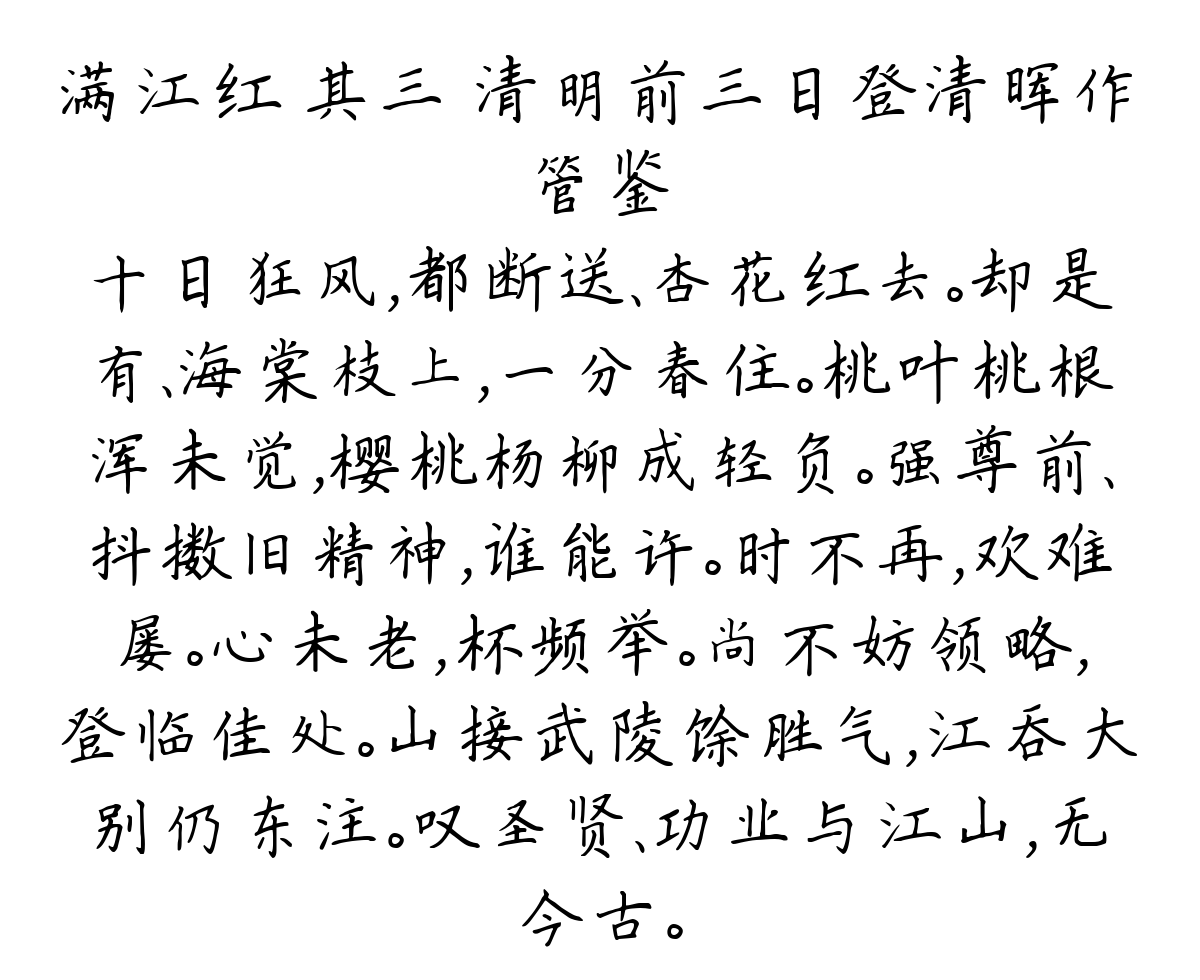 满江红 其三 清明前三日登清晖作
管鉴
十日狂风,都断送、杏花红去。却是
有、海棠枝上,一分春住。桃叶桃根
浑未觉,樱桃杨柳成轻负。强尊前、
抖擞旧精神,谁能许。时不再,欢难
屡。心未老,杯频举。尚不妨领略,
登临佳处。山接武陵馀胜气,江吞大
别仍东注。叹圣贤、功业与江山,无
今古。